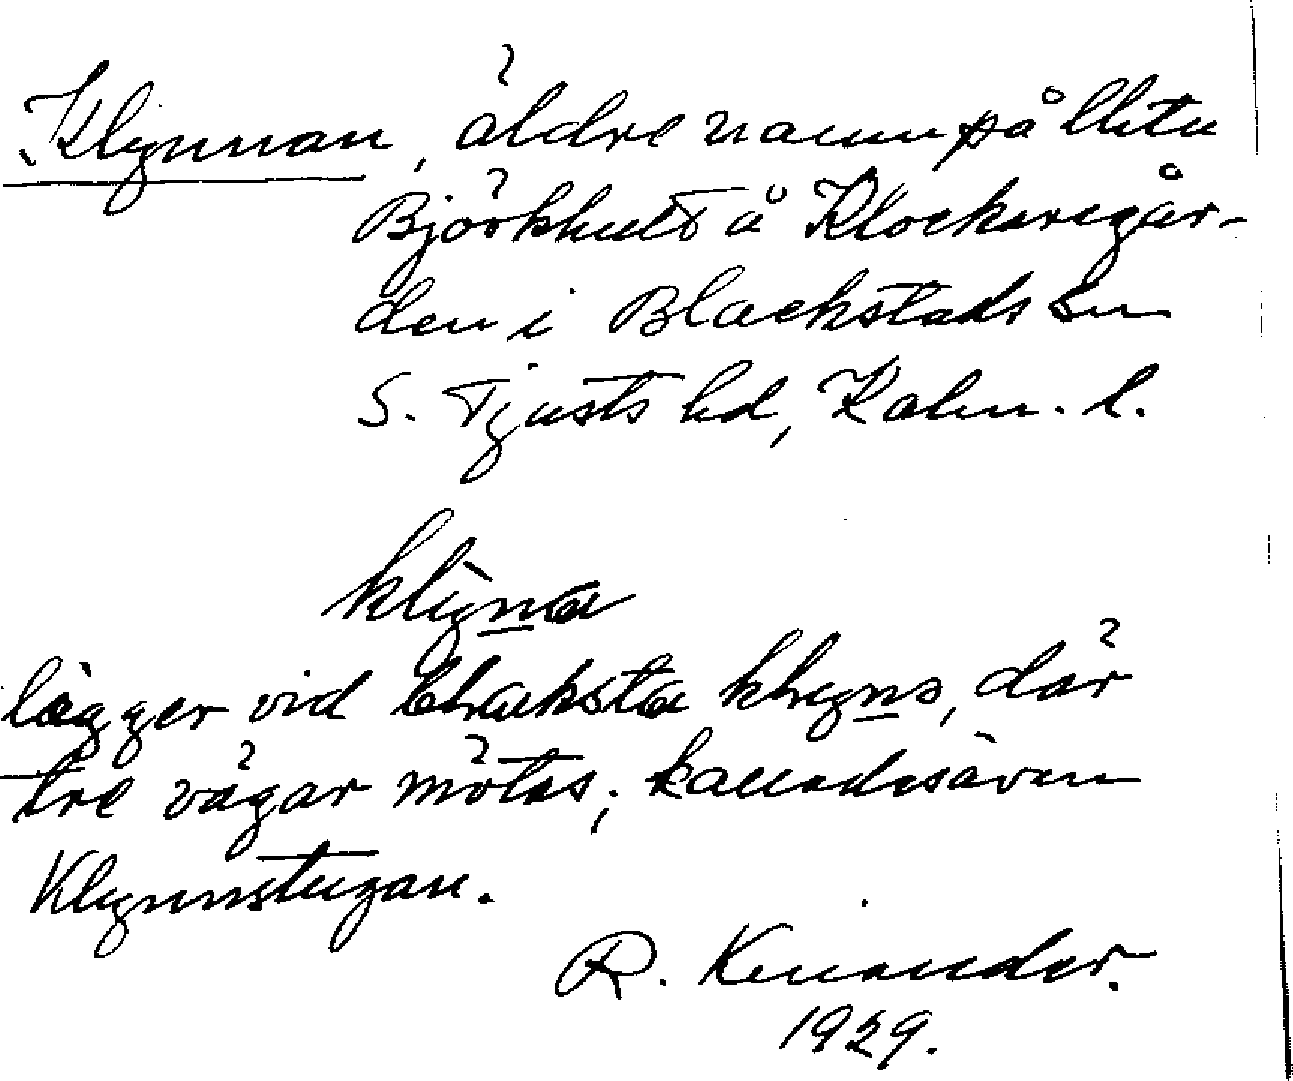 Klynnan, äldre namn på lht
Björkhult å Klockaregår-
den i Blackstads sn
S. Tjusts hd, Kalm. l.
klyna
ligger vid blaksta klyns, där
tre vägar mötas; kallades även
Klynnstugan.
R. Kenander.
1929.